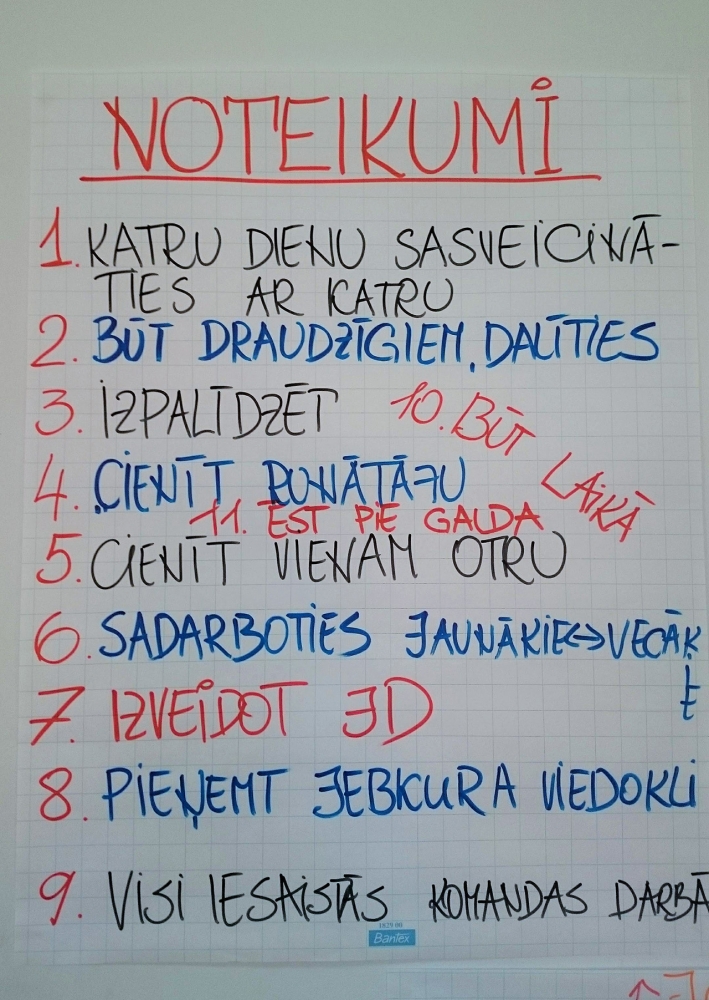 NOTEIKUMI
1. KATRU DIENU SASVEICINĀ-
TIES AR KATRU
2. BŪT DRAUDZĪGIEM, DALĪTIES
3. IZPALĪDZĒT
10. BŪT LAIKĀ
4. CIENĪT RUNĀTĀJU
11. ĒST PIE GALDA
5. CIENĪT VIENAM OTRU
6. SADARBOTIES JAUNĀKIE↔VECĀK
7. IZVEIDOT JD
8. PIEŅEMT JEBKURA VIEDOKLI
9. VISI IESAISTĀS KOMANDAS DARBĀ
1829 00
Bantex